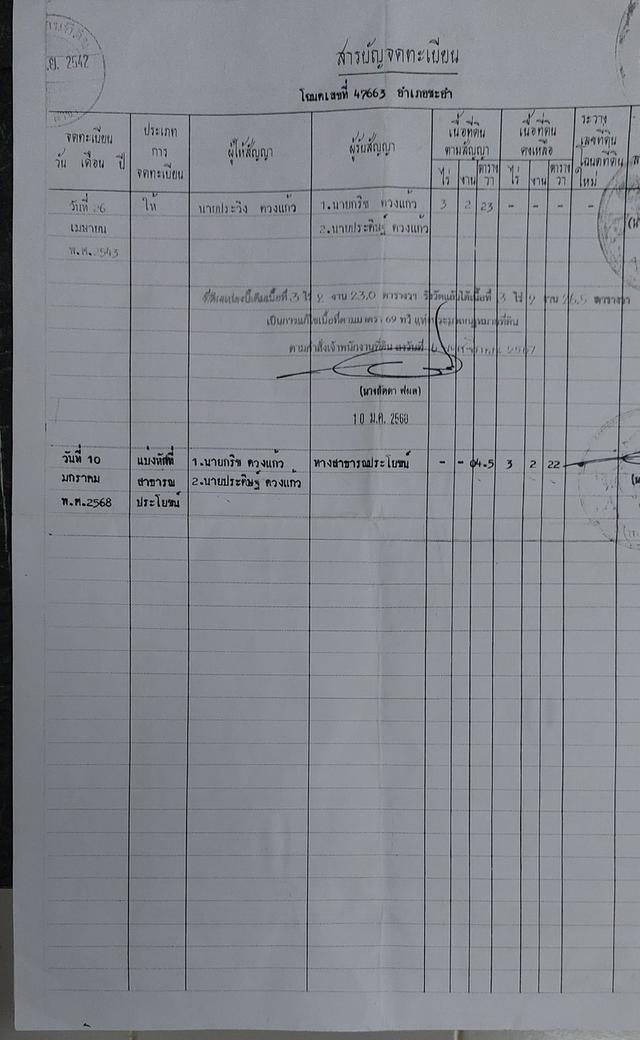 ย. 2542
สารบัญจดทะเบียน
โฉนดเลขที่ 47663 อำเภอชะอำ
จดทะเบียน
วัน เดือน ปี
ประเภท
การ
จดทะเบียน
ผู้ให้สัญญา
ผู้รับสัญญา
เนื้อที่ดิน
ตามสัญญา
ไร่ งาน ตาราง
วา
เนื้อที่ดิน
คงเหลือ
ไร่ งาน ตาราง
วา
ระวาง
เลขที่ดิน
โฉนดที่ดิน
ใหม่
วันที่ 26 ให้ นายประวิง ดวงแก้ว 1.นายกริช ดวงแก้ว 3 2 23 - - - -
เมษายน 2.นายประดิษฐ์ ดวงแก้ว
พ.ศ.2543
ที่ดินแปลงนี้เดิมเนื้อที่ 3 ไร่ 2 งาน 23.0 ตารางวา รังวัดแล้วได้เนื้อที่ 3 ไร่ 2 งาน 26.5 ตารางวา
เป็นการแก้ไขเนื้อที่ตามมาตรา 69 ทวี แห่งประมวลกฎหมายที่ดิน
ตามคำสั่งเจ้าพนักงานที่ดิน ลงวันที่ 2567
10 ม.ค. 2568
วันที่ 10 แบ่งหักที่ 1.นายกริช ดวงแก้ว ทางสาธารณประโยชน์ - - 04.5 3 2 22
มกราคม สาธารณ 2.นายประดิษฐ์ ดวงแก้ว
พ.ศ.2568 ประโยชน์